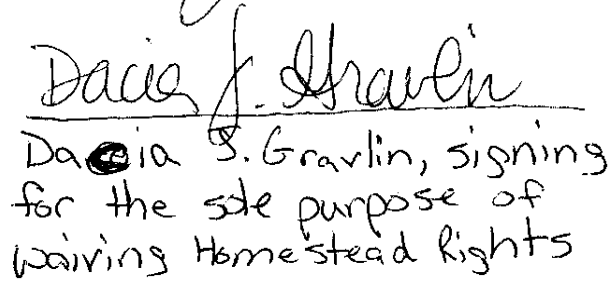 Dacia J. Gravlin
Dacia J. Gravlin, signing
for the sole purpose of
waiving Homestead Rights